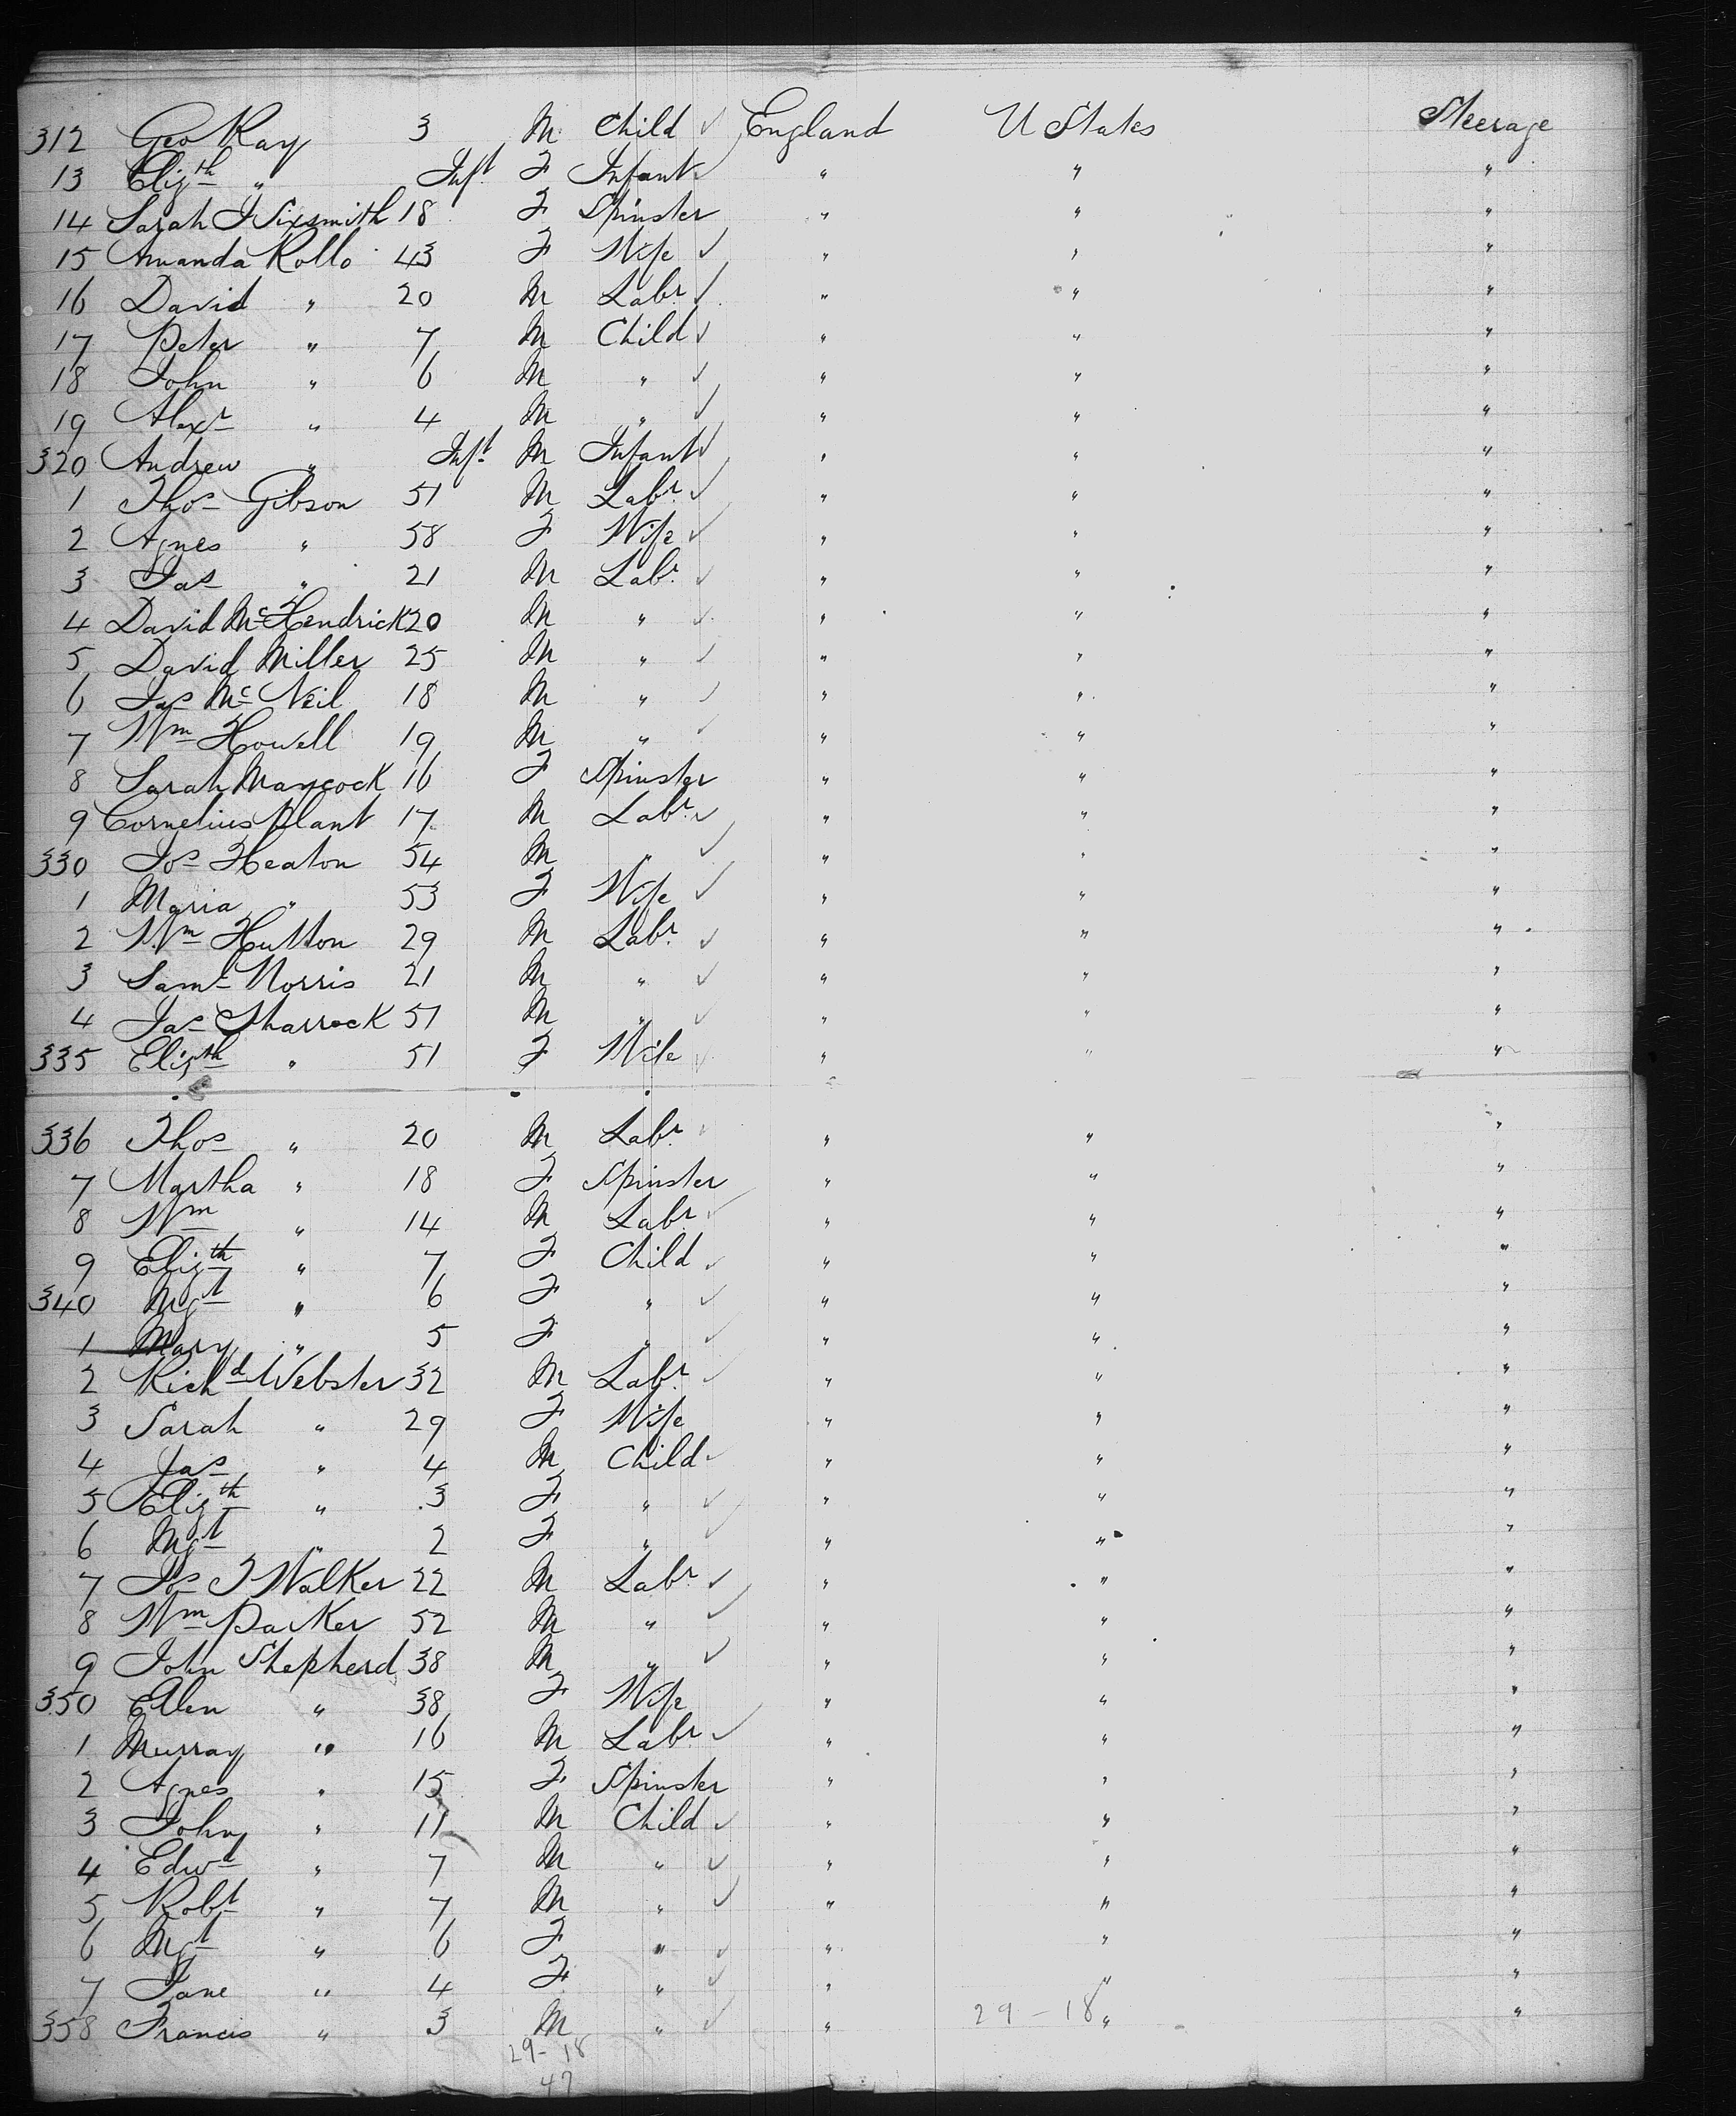 312 Geo Kay 3 M Child ✓ England U States Steerage
13 Elizth " Inft F Infant ✓ " " "
14 Sarah J Sixsmith 18 F Spinster " " "
15 Amanda Rollo 43 F Wife ✓ " " "
16 David " 20 M Labr ✓ " " "
17 Peter " 7 M Child ✓ " " "
18 John " 6 M " ✓ " " "
19 Alexr " 4 M " ✓ " " "
320 Andrew " Inft M Infant ✓ " " "
1 Thos Gibson 51 M Labr ✓ " " "
2 Agnes " 58 F Wife ✓ " " "
3 Jas " 21 M Labr ✓ " " "
4 David McHendrick 20 M " ✓ " " "
5 David Miller 25 M " ✓ " " "
6 Jas McNeil 18 M " ✓ " " "
7 Wm Howell 19 M " ✓ " " "
8 Sarah Mancock 16 F Spinster " " "
9 Cornelius Plant 17 M Labr ✓ " " "
330 Jos Heaton 54 M " ✓ " " "
1 Maria " 53 F Wife ✓ " " "
2 Wm Hutton 29 M Labr ✓ " " "
3 Saml Norris 21 M " ✓ " " "
4 Jas Sharrock 51 M " ✓ " " "
335 Elizth " 51 F Wife ✓ " " "
336 Thos " 20 M Labr ✓ " " "
7 Martha " 18 F Spinster " " "
8 Wm " 14 M Labr ✓ " " "
9 Elizth " 7 F Child ✓ " " "
340 Mgt " 6 F " ✓ " " "
1 Mary " 5 F " ✓ " " "
2 Richd Webster 32 M Labr ✓ " " "
3 Sarah " 29 F Wife " " "
4 Jas " 4 M Child ✓ " " "
5 Elizth " 3 F " ✓ " " "
6 Mgt " 2 F " ✓ " " "
7 Jos J Walker 22 M Labr ✓ " " "
8 Wm Parker 52 M " ✓ " " "
9 John Shepherd 38 M " ✓ " " "
350 Ellen " 38 F Wife " " "
1 Murray " 16 M Labr ✓ " " "
2 Agnes " 15 F Spinster " " "
3 John " 11 M Child ✓ " " "
4 Edwd " 7 M " ✓ " " "
5 Robt " 7 M " ✓ " " "
6 Mgt " 6 F " ✓ " " "
7 Jane " 4 F " ✓ " " "
358 Francis " 3 M " ✓ " 29-18 " "
29-18
47